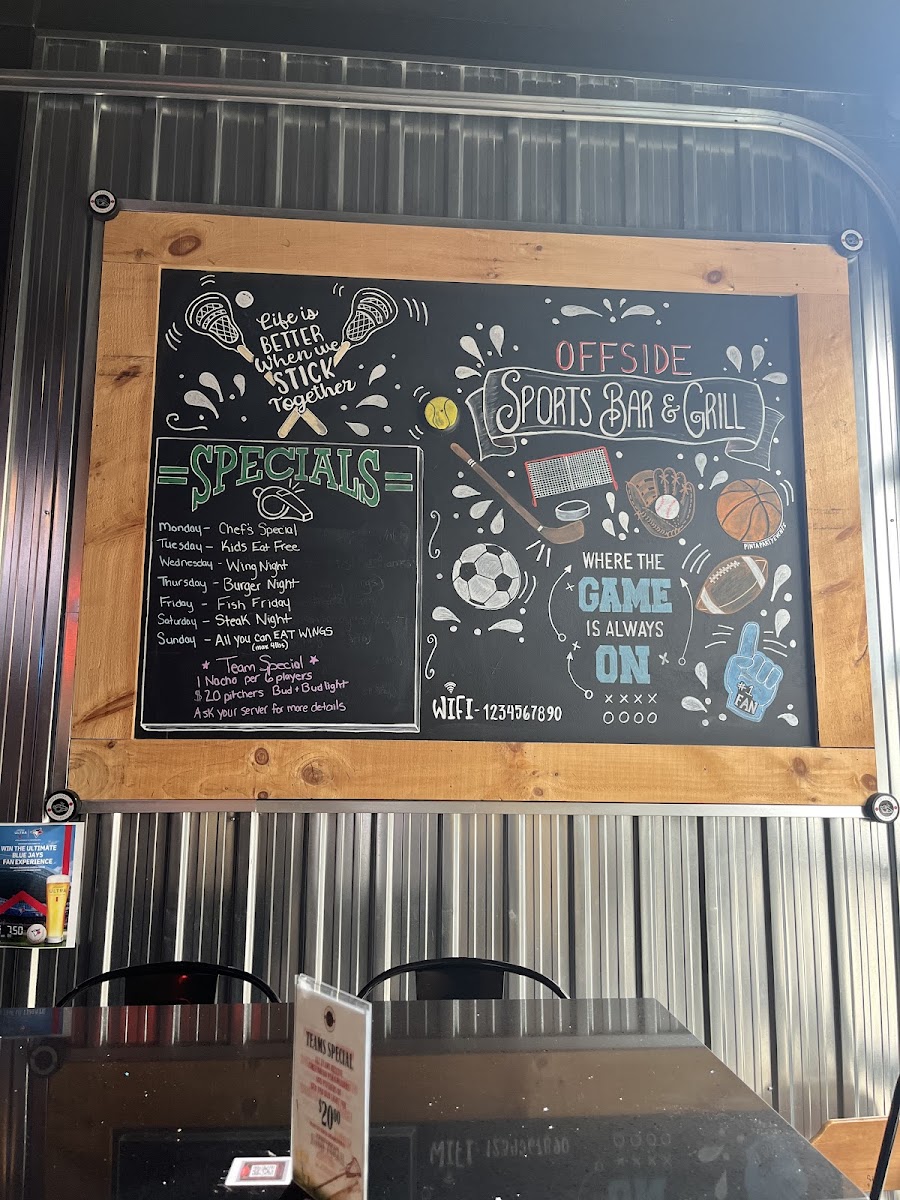 Life is
BETTER
When we
STICK
Together
OFFSIDE
SPORTS BAR & GRILL
=SPECIALS=
Monday - Chef's Special
Tuesday - Kids Eat Free
Wednesday - Wing Night
Thursday - Burger Night
Friday - Fish Friday
Saturday - Steak Night
Sunday - All you can EAT WINGS
(max 4lbs)
* Team Special *
1 Nacho per 6 players
$20 pitchers Bud + Bud light
Ask your server for more details
WHERE THE
GAME
IS ALWAYS
ON
XXXX
OOOO
#1
FAN
WIFI - 1234567890
WIN THE ULTIMATE
BLUE JAYS
FAN EXPERIENCE
TEAMS SPECIAL
$20.00